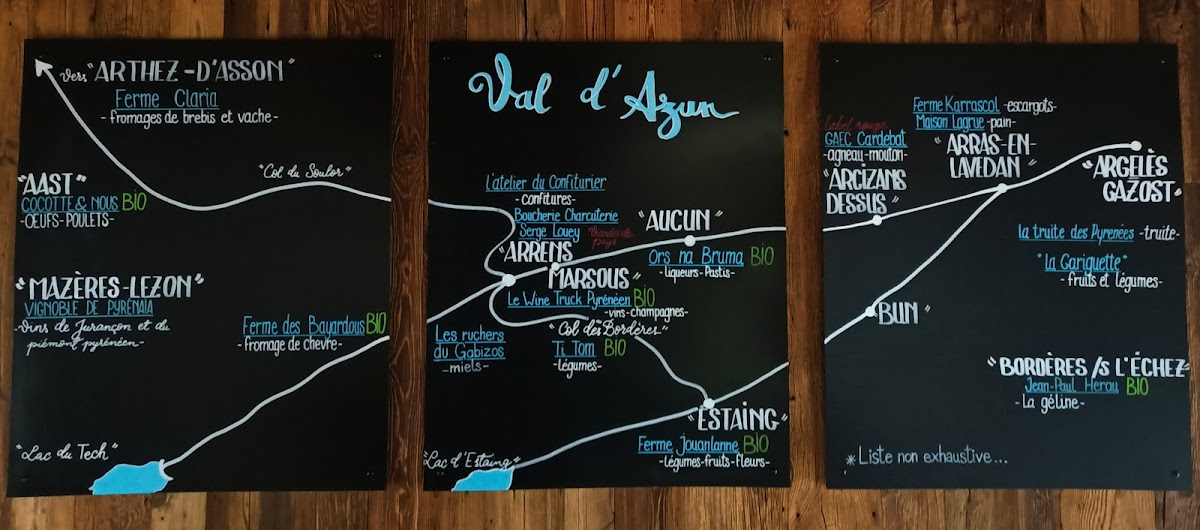 Vers "ARTHEZ-D'ASSON"
Ferme Claria
- fromages de brebis et vache -
"Col du Soulor"
"AAST"
COCOTTE & NOUS BIO
- OEUFS-POULETS -
"MAZÈRES-LEZON"
VIGNOBLE DE PYRÉNAÏA
- Vins de Jurançon et du
piémont pyrénéen -
Ferme des Bayardous BIO
- fromage de chèvre -
"Lac du Tech"
Val d'Azun
L'atelier du Confiturier
- confitures -
Boucherie Charcuterie
Serge Louey Viandes de
pays
"AUCUN"
Ors na Bruma BIO
- liqueurs-Pastis -
"ARRENS
MARSOUS"
Le Wine Truck Pyrénéen BIO
- vins-champagnes -
"Col des Bordères"
Les ruchers
du Gabizos
- miels -
Ti Tom BIO
- légumes -
"ESTAING"
Ferme Jouanlanne BIO
- légumes-fruits-fleurs -
"Lac d'Estaing"
Ferme Karrascol - escargots -
Maison Lagrue - pain -
Label rouge
GAEC Cardebat
- agneau-mouton -
"ARCIZANS
DESSUS"
"ARRAS-EN-
LAVEDAN"
"ARGELÈS
GAZOST"
la truite des Pyrénées - truite -
"la Gariguette"
- fruits et légumes -
"BUN"
"BORDÈRES /s L'ÉCHEZ"
Jean-Paul Herau BIO
- La géline -
* Liste non exhaustive...